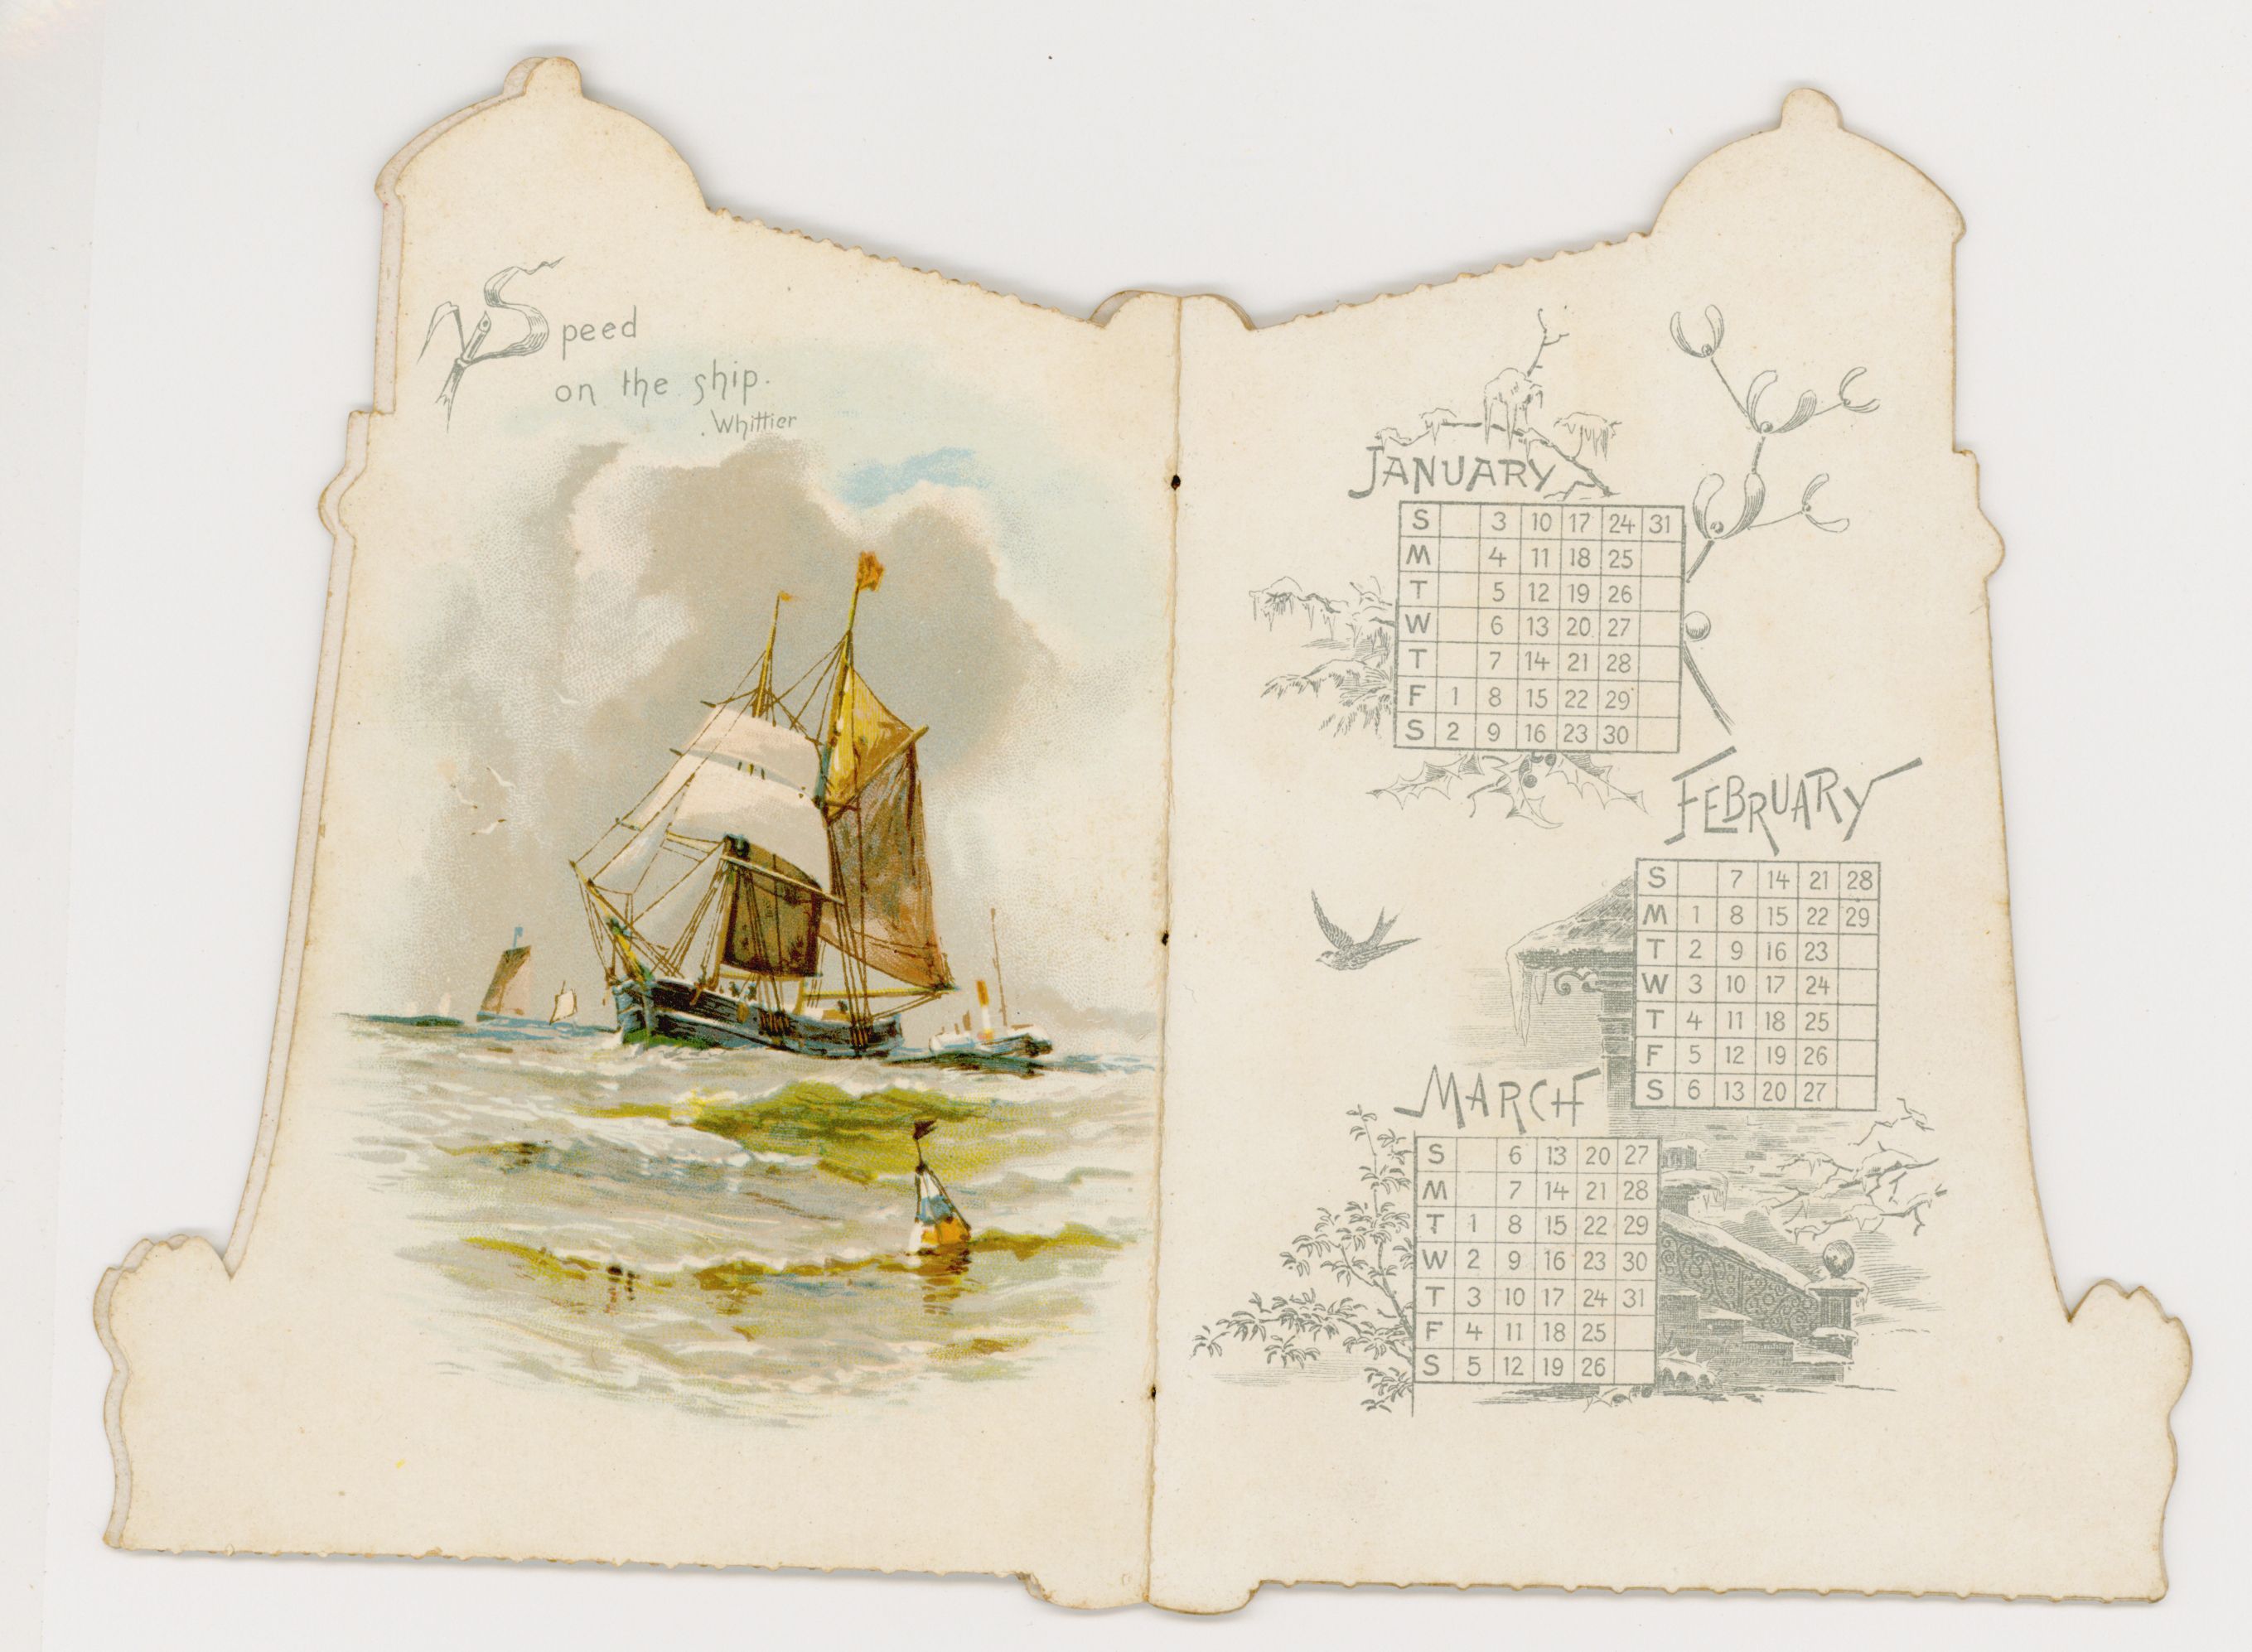 Speed
on the ship.
Whittier
JANUARY
S 3 10 17 24 31
M 4 11 18 25
T 5 12 19 26
W 6 13 20 27
T 7 14 21 28
F 1 8 15 22 29
S 2 9 16 23 30
FEBRUARY
S 7 14 21 28
M 1 8 15 22 29
T 2 9 16 23
W 3 10 17 24
T 4 11 18 25
F 5 12 19 26
S 6 13 20 27
MARCH
S 6 13 20 27
M 7 14 21 28
T 1 8 15 22 29
W 2 9 16 23 30
T 3 10 17 24 31
F 4 11 18 25
S 5 12 19 26